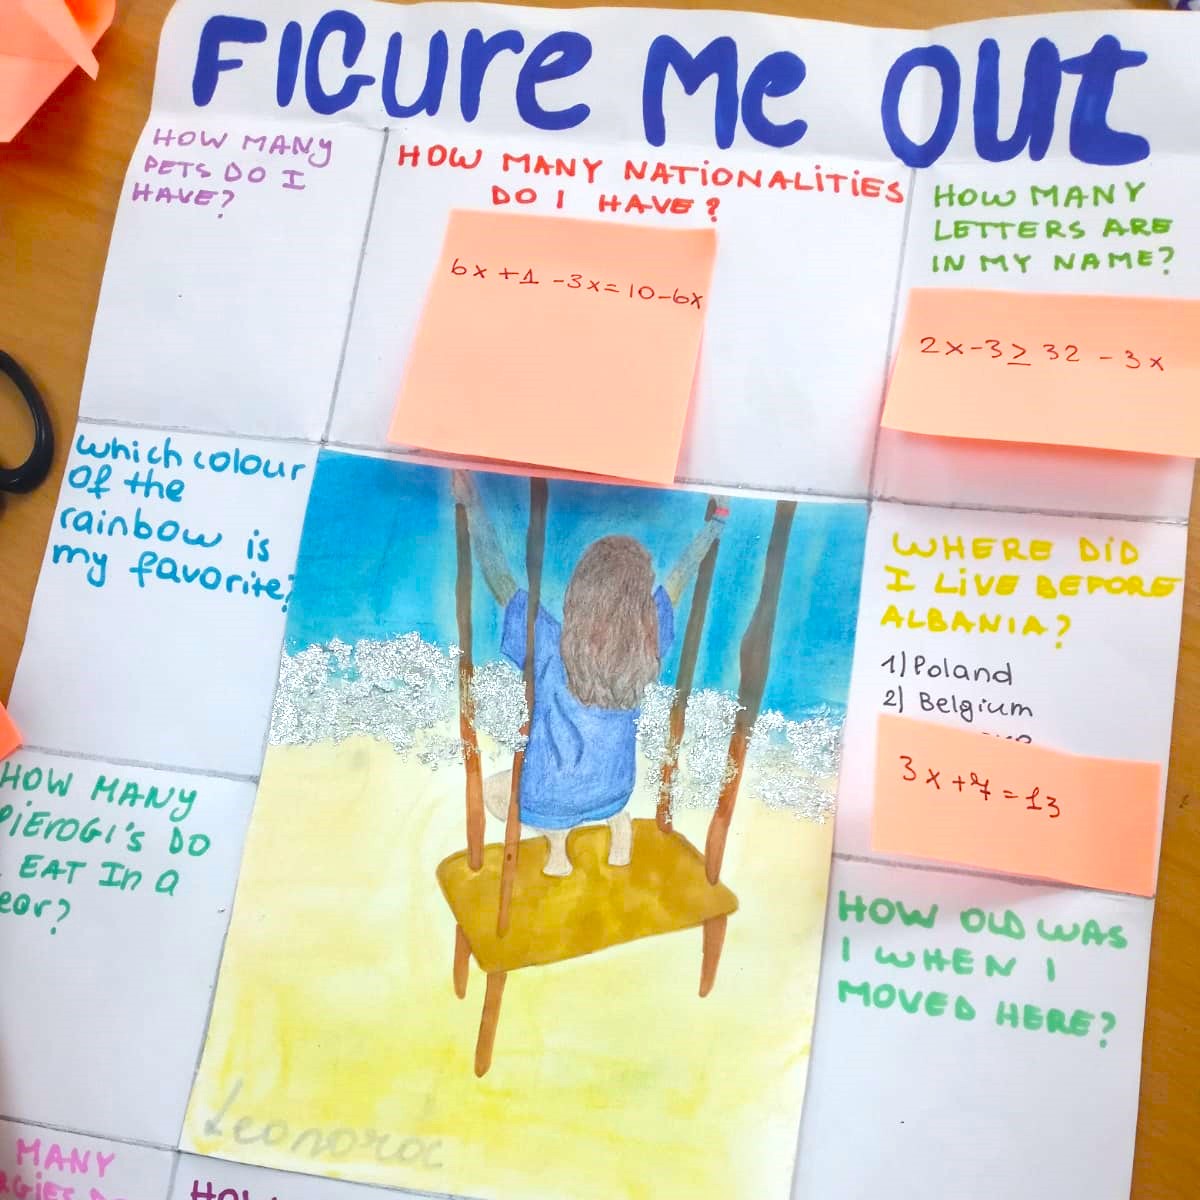 FIGure Me OUT
HOW MANY
PETS DO I
HAVE?
HOW MANY NATIONALITIES
DO I HAVE?
6x +1 -3x=10-6x
HOW MANY
LETTERS ARE
IN MY NAME?
2x-3≥ 32 - 3x
which colour
Of the
rainbow is
my favorite?
WHERE DiD
I LiVE BEFORE
ALBANIA?
1) Poland
2) Belgium
3x+7=13
HOW MANY
PiEROGi's DO
EAT In a
HOW OLD WAS
I WHEN I
MOVED HERE?
MANY